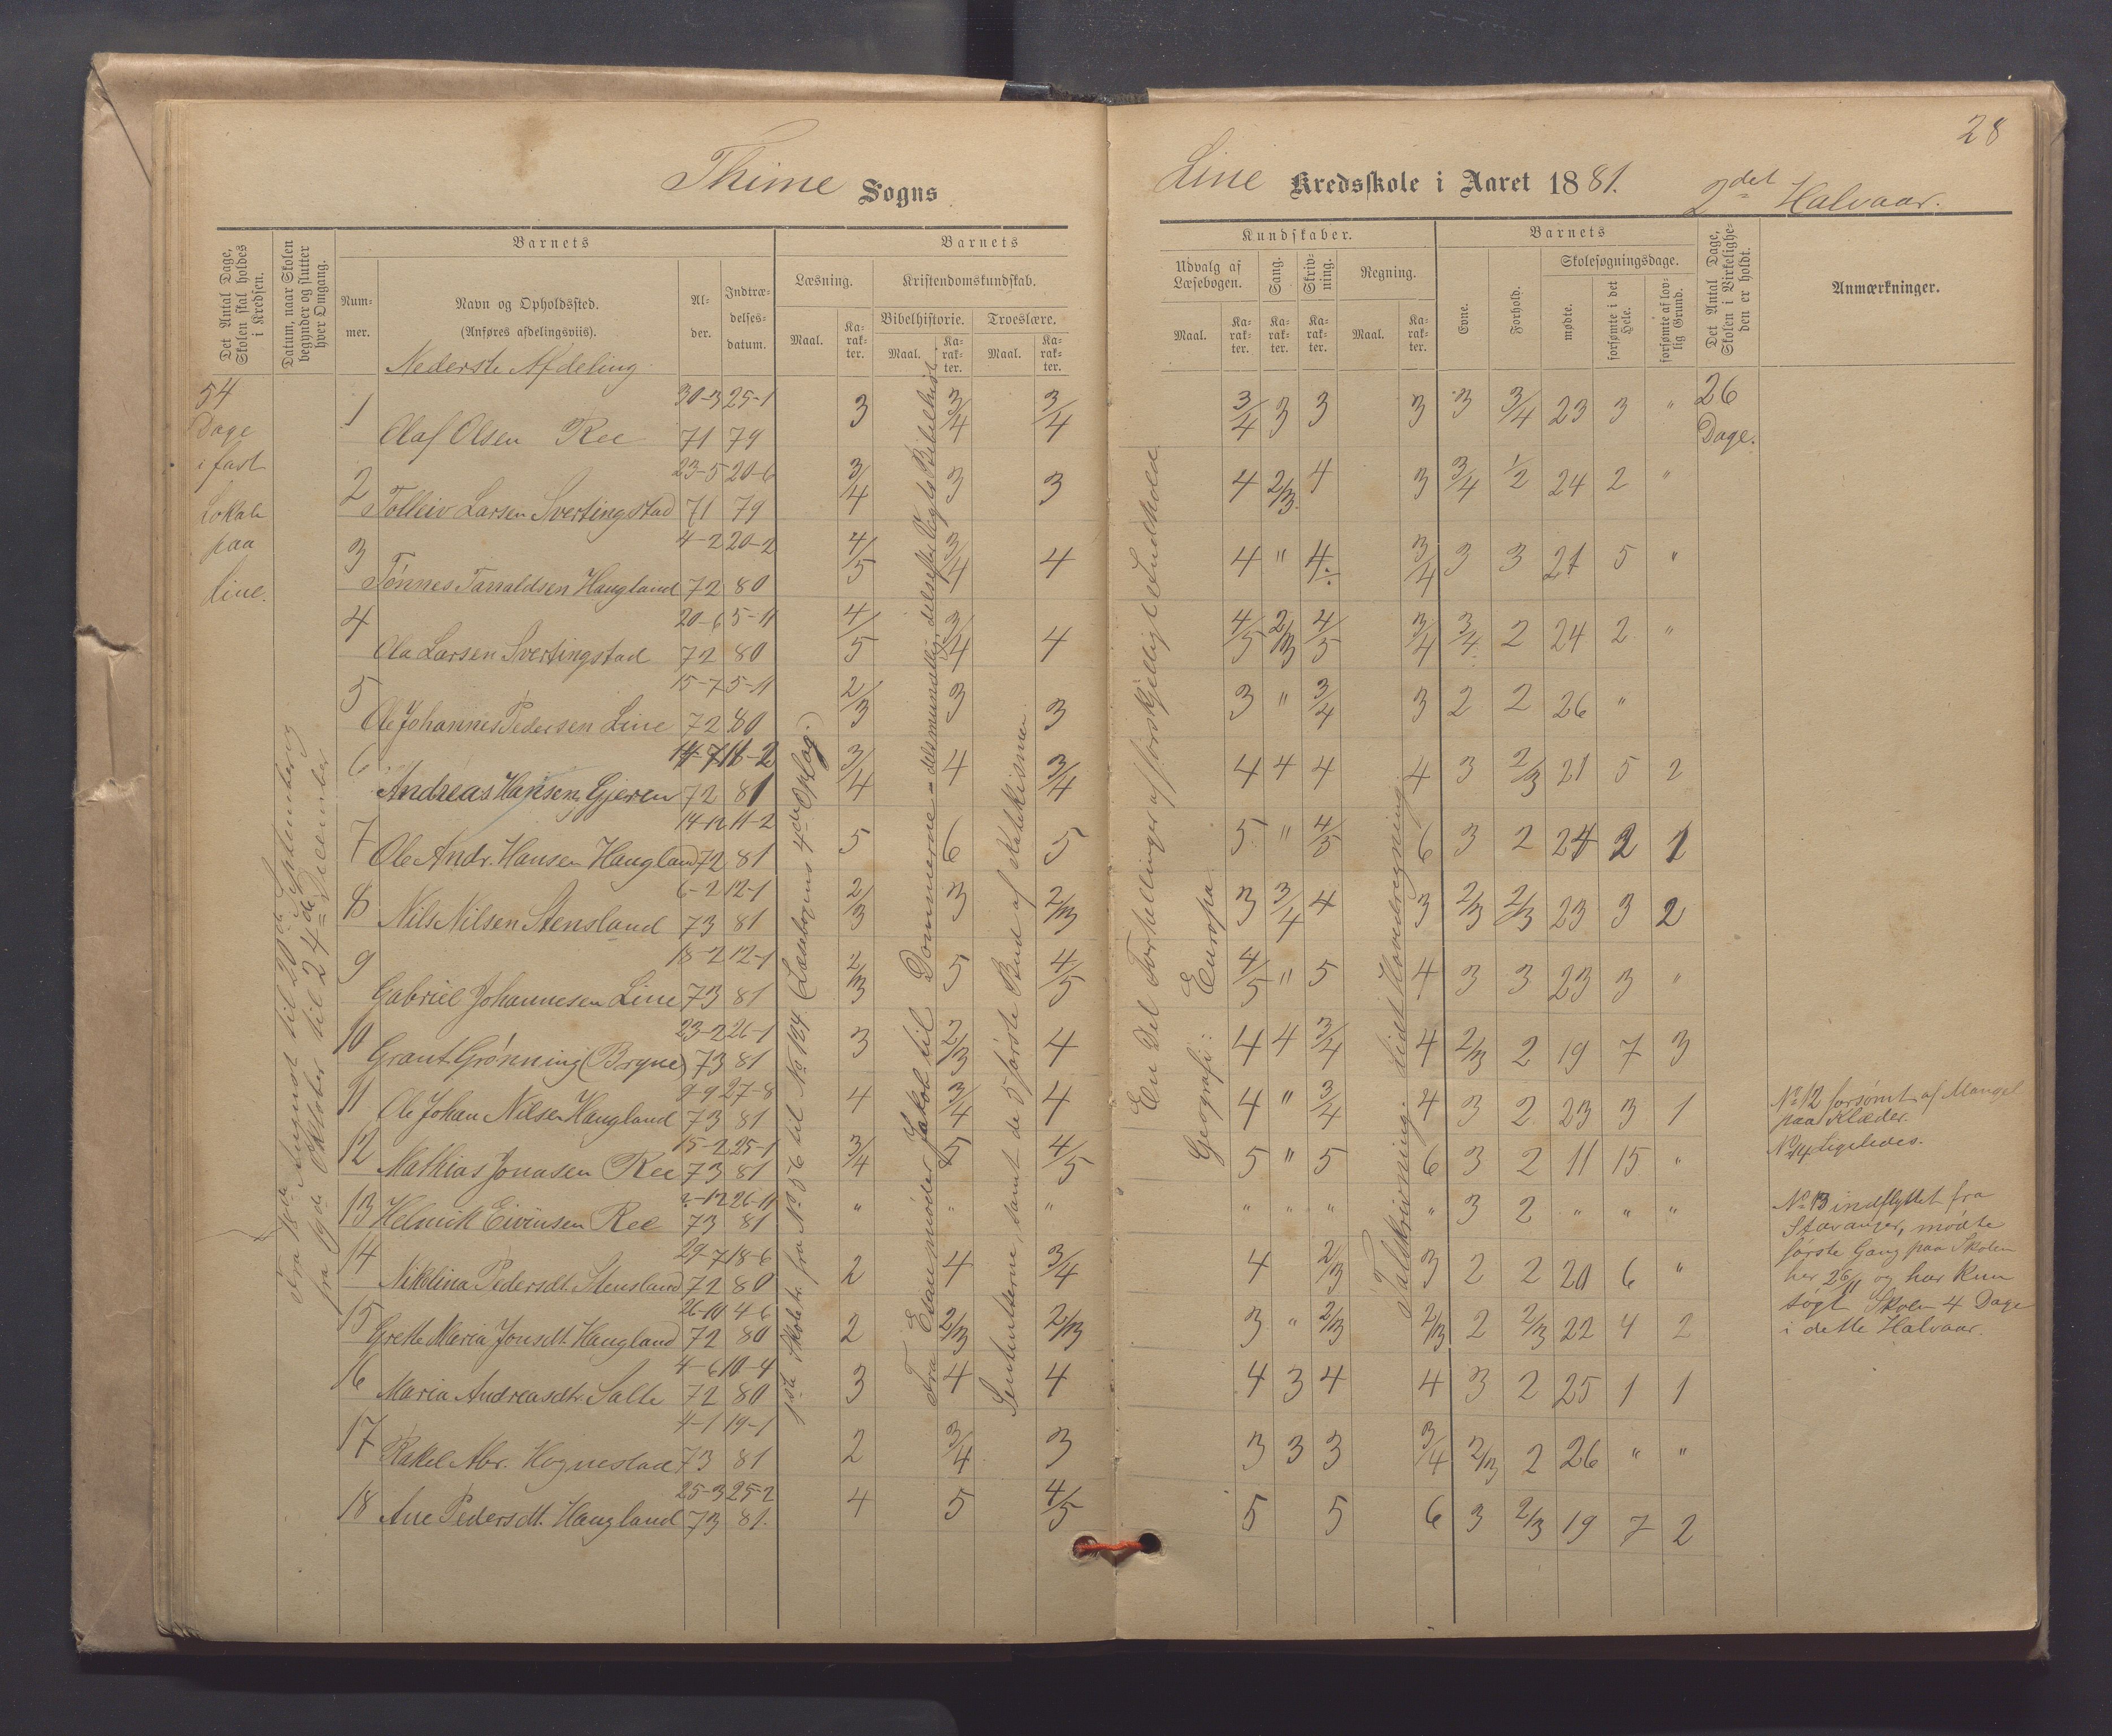 28
Thime Sogns
Line Kredsskole i Aaret 1881. 2det Halvaar.
Det Antal Dage, Skolen skal holdes i Kredsen.
Datum, naar Skolen begynder og slutter hver Omgang.
Barnets
Nummer.
Navn og Opholdssted.
(Anføres afdelingsviis).
Alder.
Indtrædelsesdatum.
Barnets
Læsning.
Maal.
Karakter.
Kristendomskundskab.
Bibelhistorie.
Maal.
Karakter.
Troeslære.
Maal.
Karakter.
Kundskaber.
Udvalg af Læsebogen.
Maal.
Karakter.
Sang.
Karakter.
Skrivning.
Karakter.
Regning.
Maal.
Karakter.
Barnets
Evne.
Forhold.
Skolesøgningsdage.
mødte.
forsømte i det Hele.
forsømte af lovlig Grund.
Det Antal Dage, Skolen i Virkeligheden er holdt.
Anmærkninger.
Nederste Afdeling
54
Dage
i fast
Lokale
paa
Line.
Fra 18de August til 20de September og
fra 19de Oktober til 24de December
1ste Skoletr. fra No 56 til No 124. (Læsebogens 4de Oplag.)
Fra Esau møder Jakob til Dommerne - dels mundtlig, dels efter Vogts Bibelhist.
Sentenserne, samt de 5 første Bud af Katekismen
En Del Fortællinger af forskjelligt Indhold
Geografi: Europa.
Talskrivning. Lidt Hovedregning.
26
Dage.
1 Olaf Olsen Ree 30-3 71 25-1 79 3 3/4 3/4 3/4 3 3 3 3 3/4 23 3 "
2 Tolleiv Larsen Svertingstad 23-5 71 20-6 79 3/4 3 3 4 2/3 4 3 3/4 1/2 24 2 "
3 Tønnes Tarraldsen Haugland 4-2 72 20-2 80 4/5 3/4 4 4 " 4 3/4 3 3 21 5 "
4 Ola Larsen Svertingstad 20-6 72 5-11 80 4/5 3/4 4 4/5 2/3 4/5 3/4 3/4 2 24 2 "
5 Ole Johannes Pedersen Line 15-7 72 5-11 80 2/3 3 3 3 " 3/4 3 2 2 26 "
6 Andreas Hansen Gjeren 14-7 72 11-2 81 3/4 4 3/4 4 4 4 4 3 2/3 21 5 2
7 Ole Andr. Hansen Haugland 14-12 72 11-2 81 5 6 5 5 " 4/5 6 3 2 24 2 1
8 Nils Nilsen Stensland 6-2 73 12-1 81 2/3 3 2/3 3 3/4 4 3 2/3 2/3 23 3 2
9 Gabriel Johannesen Line 18-2 73 12-1 81 2/3 5 4/5 4/5 " 5 4 3 3 23 3 "
10 Grant Grønning (Bryne) 23-2 73 26-1 81 3 2/3 4 4 4 3/4 4 2/3 2 19 7 3
11 Ole Johan Nilsen Haugland 9-9 73 27-8 81 4 3/4 4 4 " 3/4 4 3 2 23 3 1
12 Mathias Jonasen Ree 15-2 73 25-1 81 3/4 5 4/5 5 " 5 6 3 2 11 15 "
13 Helmik Eivinsen Ree 2-12 73 26-11 81 " " " " " " " 3 2 " " "
14 Nikolina Pedersdt. Stensland 29-7 72 18-6 80 2 4 3/4 4 2/3 3 2 2 20 6 "
15 Grette Maria Jonsdt. Haugland 26-10 72 4-6 80 2 2/3 2/3 3 " 2/3 2/3 2 2/3 22 4 2
16 Maria Andreasdtr. Salte 4-6 72 10-4 80 3 4 4 4 3 4 4 3 2 25 1 1
17 Rakel Abr. Hognestad 4-1 73 19-1 81 2 3/4 3 3 3 3 3/4 2/3 2 26 " "
18 Ane Pedersdt. Haugland 25-3 73 25-2 81. 4 5 4/5 5 5 6 3 2/3 19 7 2
No 12 forsømt af Mangel
paa Klæder.
No 14 Ligeledes.
No 13 indflyttet fra
Stavanger, mødte
første Gang paa Skolen
her 26/11 og har kun
søgt Skolen 4 Dage
i dette Halvaar.